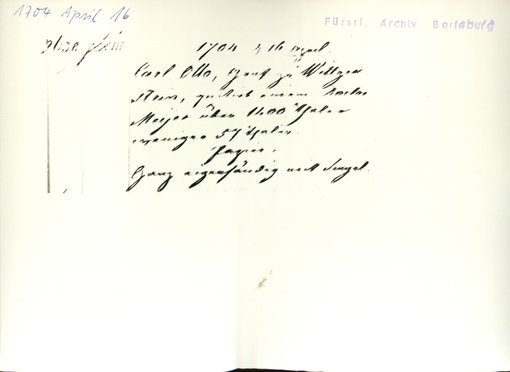 1704 April 16
Fürstl. Archiv Berleburg
1704 16 April
Carl Otto, Graf zu Wittgen
stein, quittirt einem
Meyer über 1400 Thaler
weniger 57 Thaler.
Papier.
Ganz eigenhändig mit Siegel.